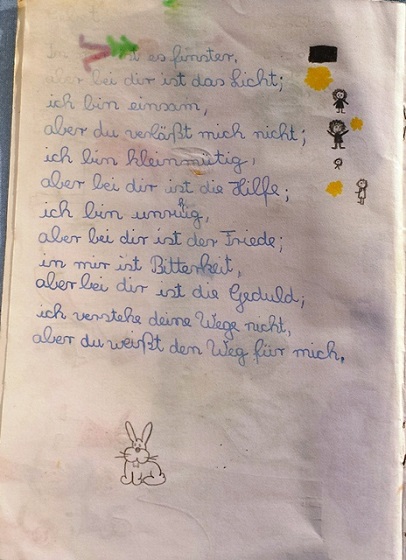 In es finster,
aber bei dir ist das Licht;
ich bin einsam,
aber du verläßt mich nicht;
ich bin kleinmütig,
aber bei dir ist die Hilfe;
ich bin unruhig,
aber bei dir ist der Friede;
in mir ist Bitterkeit,
aber bei dir ist die Geduld;
ich verstehe deine Wege nicht,
aber du weißt den Weg für mich.